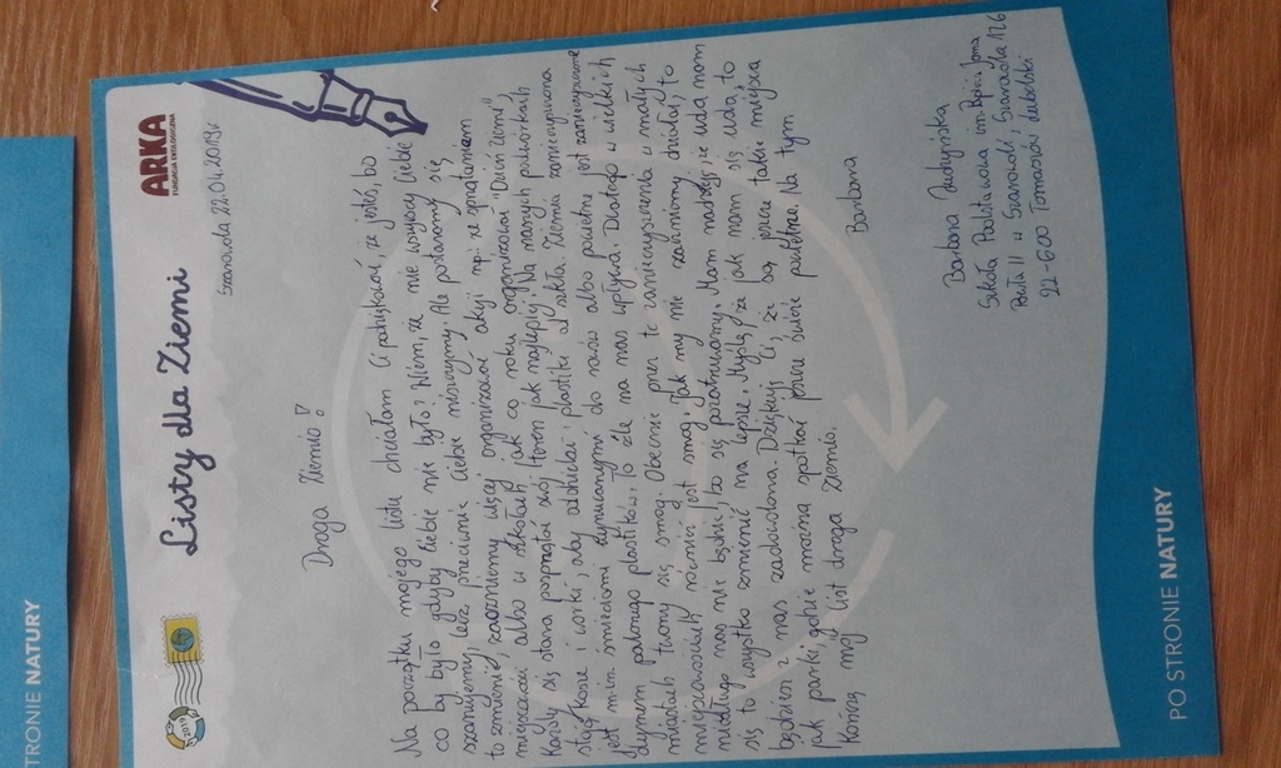 TRONIE NATURY
2019
Listy dla Ziemi
ARKA
FUNDACJA EKOLOGICZNA
Szarowola 22.04.2019r.
Droga Ziemio!
Na początku mojego listu chciałam Ci podziękować, że jesteś, bo
co by było gdyby Ciebie nie było? Wiem, że nie wszyscy Ciebie
szanujemy, lecz przeciwnie Ciebie niszczymy. Ale postanowmy się
to zmienić, zaczniemy więcej organizować akcji np: ze sprzątaniem
miejscowości albo w szkołach jak co roku organizować "Dzień Ziemi",
Każdy się stara posprzątać swój teren jak najlepiej. Na naszych podwórkach
stoją kosze i worki, aby oddzielać plastiki od szkła. Ziemia zanieczyszczona
jest m.in. śmieciami wyrzucanymi do rowów albo powietrze jest zanieczyszczone
dymem palonego plastików. To źle na nas wpływa. Dlatego w wielkich
miastach tworzy się smog. Obecnie przez te zanieczyszczenia w małych
miejscowościach również jest smog. Jak my nie zaczniemy działać, to
niedługo nas nie będzie, bo się pozatruwamy. Mam nadzieję, że uda nam
się to wszystko zmienić na lepsze. Myślę, że jak nam się uda, to
będziesz z nas zadowolona. Dziękuję Ci, że są jeszcze takie miejsca
jak parki, gdzie można spotkać jeszcze świeże powietrze. Na tym
kończę mój list droga Ziemio.
Barbara
Barbara
Szkoła Podstawowa im. Papieża Jana
Pawła II w Szarowoli, Szarowola 126
22-600 Tomaszów Lubelski
PO STRONIE NATURY